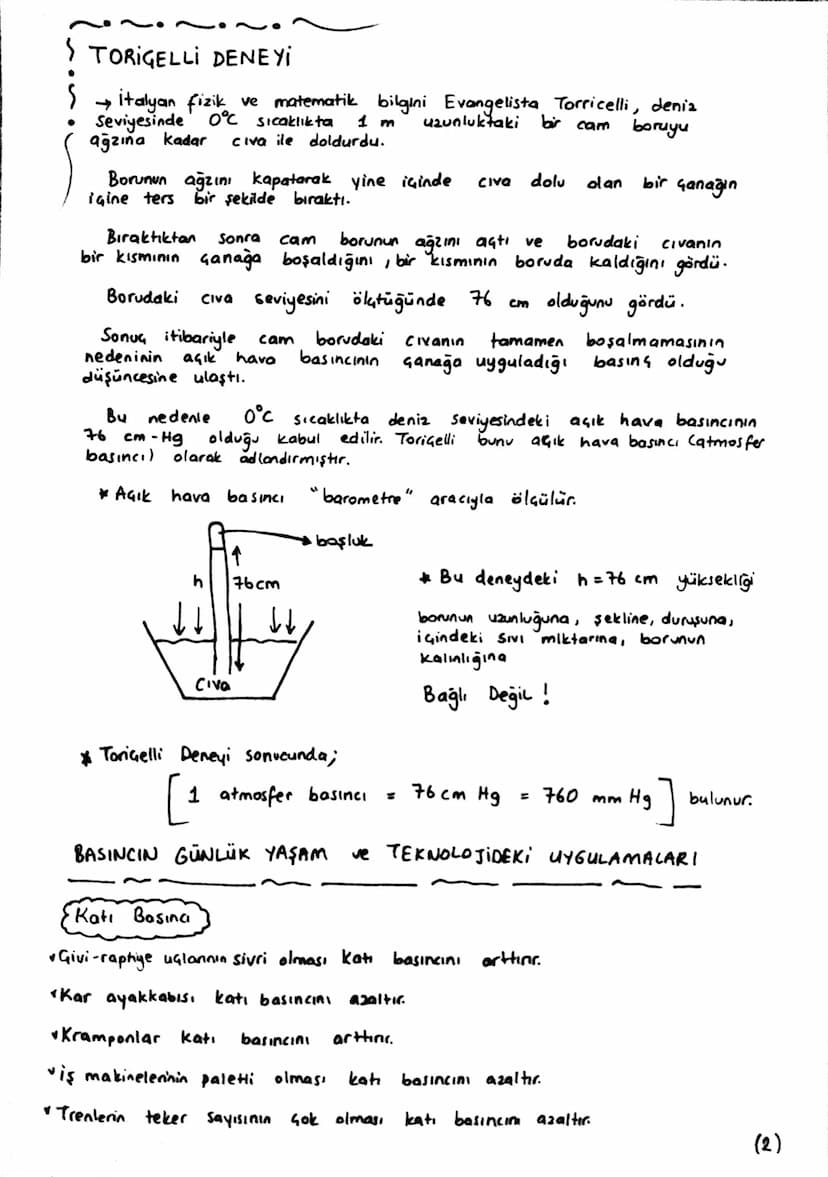 TORİÇELLİ DENEYİ
→ İtalyan fizik ve matematik bilgini Evangelista Torricelli, deniz
seviyesinde 0°C sıcaklıkta 1 m uzunluktaki bir cam boruyu
ağzına kadar cıva ile doldurdu.
Borunun ağzını kapatarak yine içinde cıva dolu olan bir çanağın
içine ters bir şekilde bıraktı.
Bıraktıktan sonra cam borunun ağzını açtı ve borudaki cıvanın
bir kısmının çanağa boşaldığını, bir kısmının boruda kaldığını gördü.
Borudaki cıva seviyesini ölçtüğünde 76 cm olduğunu gördü.
Sonuç itibariyle cam borudaki cıvanın tamamen boşalmamasının
nedeninin açık hava basıncının çanağa uyguladığı basınç olduğu
düşüncesine ulaştı.
Bu nedenle 0°C sıcaklıkta deniz seviyesindeki açık hava basıncının
76 cm-Hg olduğu kabul edilir. Toriçelli bunu açık hava basıncı (atmosfer
basıncı) olarak adlandırmıştır.
* Açık hava basıncı "barometre" aracıyla ölçülür.
boşluk
h 76cm
Cıva
* Bu deneydeki h=76 cm yüksekliği
borunun uzunluğuna, şekline, duruşuna,
içindeki sıvı miktarına, borunun
kalınlığına
Bağlı Değil!
* Toriçelli Deneyi sonucunda;
[1 atmosfer basıncı = 76 cm Hg = 760 mm Hg] bulunur.
BASINCIN GÜNLÜK YAŞAM ve TEKNOLOJİDEKİ UYGULAMALARI
Katı Basıncı
Çivi-raptiye uçlarının sivri olması katı basıncını arttırır.
Kar ayakkabısı katı basıncını azaltır.
Kramponlar katı basıncını arttırır.
İş makinelerinin paletli olması katı basıncını azaltır.
Trenlerin teker sayısının çok olması katı basıncını azaltır.
(2)